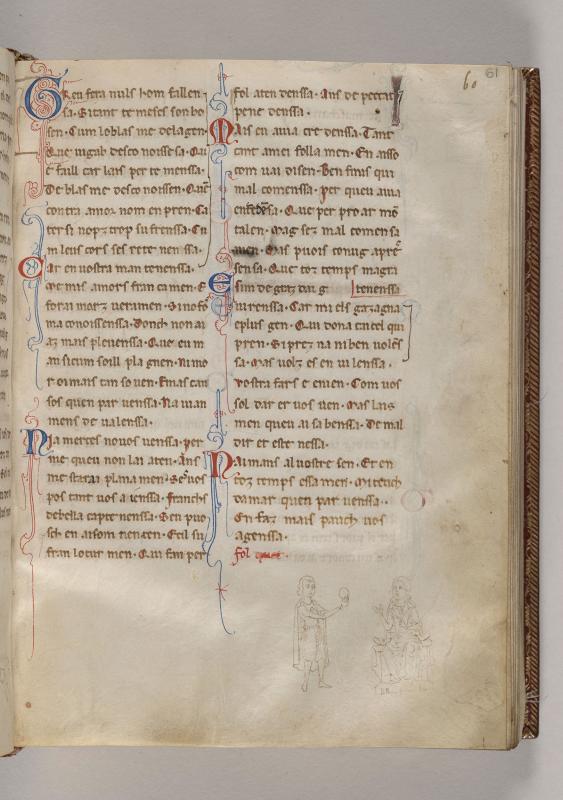 60
61
Greu fera nuls hom fallen
sa. Si tant temes son bo
sen. Cum lo blasme de la gen
Que iugab desconoissensa. Qu
e faill car lais per temenssa.
De blasme desconoissen. Que
contra amor nom enpren. Ca
tersi nopz trop sufrenssa. Cu
m leus cors ses retenenssa.
Car en uostra mantenenssa.
Me mis amors francamen. E
fora i morz ueramen. Si no fos
ma conoissenssa. Donch non ai
az mais pleuenssa. Que eu m
an si cum soill plagnen. Ni mo
r oimais tan souen. En
sos quen par uenssa. Na
mens de ualenssa.
Nia merces no uos uenssa. per
me queu non lai aten. Ans
me starai planamen. Ses uos
pos tant uos a uenssa. Franchs
de bella captenenssa. Ben puo
sch en aisom
fran lo tur men. Qui fan per
fol atendenssa. Ans de peccat
penedenssa.
Mais en auia credenssa. Tant
cant amei follamen. En aisso
com uai disen. Ben fenis qui
mal comenssa. per queu auia
Que per proar mo
talen. Mag ses mal comensa
men. Mas puois conug apre
sensa. Que toz temps magra
tenenssa
E sim degaz dar g
uirenssa. Car mielz gazagna
e plus gen. Qui dona cacel qui
pren. Si prez na ni benuolen
sa. Mas uolz es en uilenssa.
Vostra fars e enien. Com uos
sol dar er uos uen. Mas lais
men queu ai sabenssa. De mal
dir et estenenssa.
Naimans al uostre sen. Et en
toz temps essamen. Mi teuch
damar quen paruenssa.
En faz mais pauch uos
agenssa.
fol que